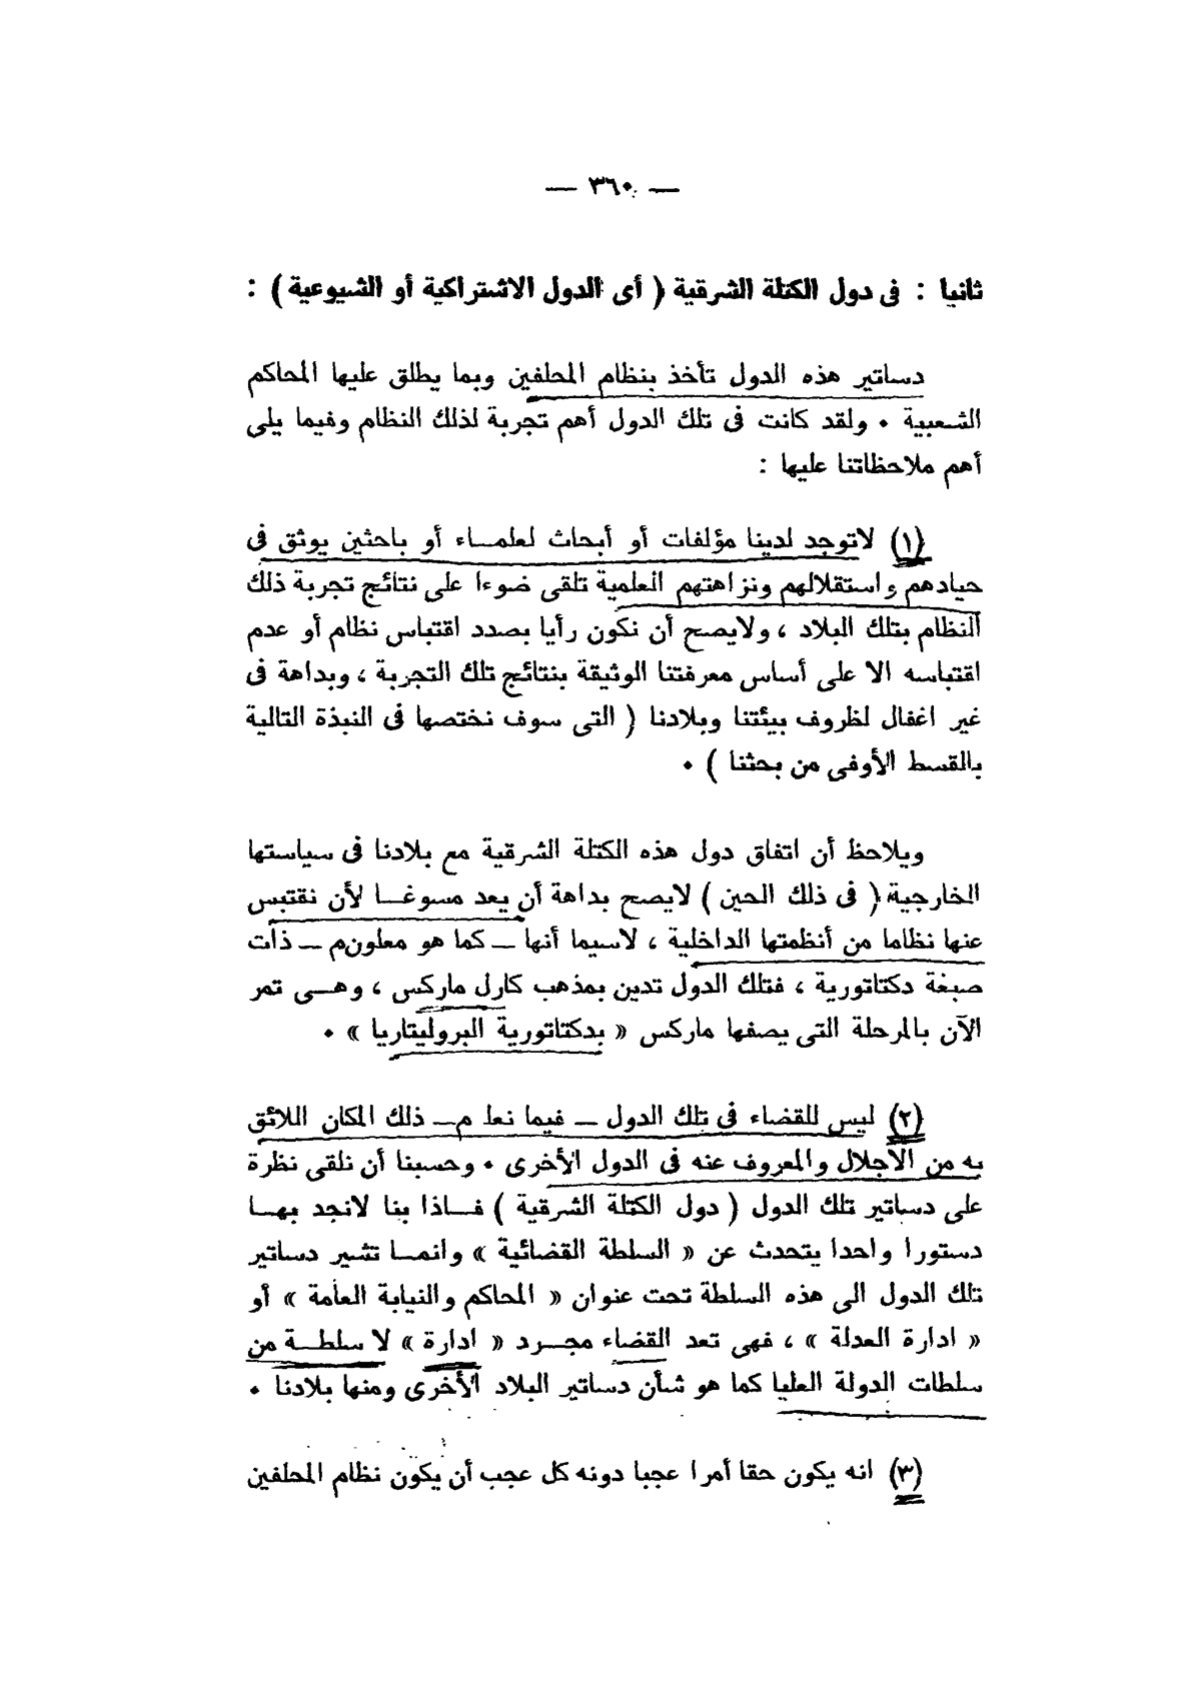 — ٣٦٠ —
ثانيا : فى دول الكتلة الشرقية ( أى الدول الاشتراكية أو الشيوعية ) :
دساتير هذه الدول تأخذ بنظام المحلفين وبما يطلق عليها المحاكم
الشعبية • ولقد كانت فى تلك الدول أهم تجربة لذلك النظام وفيما يلى
أهم ملاحظاتنا عليها :
(١) لاتوجد لدينا مؤلفات أو أبحاث لعلمـاء أو باحثين يوثق فى
حيادهم واستقلالهم ونزاهتهم العلمية تلقى ضوءا على نتائج تجربة ذلك
النظام بتلك البلاد ، ولايصح أن نكون رأيا بصدد اقتباس نظام أو عدم
اقتباسه الا على أساس معرفتنا الوثيقة بنتائج تلك التجربة ، وبداهة فى
غير اغفال لظروف بيئتنا وبلادنا ( التى سوف نختصها فى النبذة التالية
بالقسط الأوفى من بحثنا ) •
ويلاحظ أن اتفاق دول هذه الكتلة الشرقية مع بلادنا فى سياستها
الخارجية ( فى ذلك الحين ) لايصح بداهة أن يعد مسوغـا لأن نقتبس
عنها نظاما من أنظمتها الداخلية ، لاسيما أنها ــ كما هو معلونم ــ ذات
صبغة دكتاتورية ، فتلك الدول تدين بمذهب كارل ماركس ، وهـى تمر
الآن بالمرحلة التى يصفها ماركس « بدكتاتورية البروليتاريا » •
(٢) ليس للقضاء فى تلك الدول ــ فيما نعلـ م ــ ذلك المكان اللائق
به من الاجلال والمعروف عنه فى الدول الأخرى • وحسبنا أن نلقى نظرة
على دساتير تلك الدول ( دول الكتلة الشرقية ) فـاذا بنا لانجد بهـا
دستورا واحدا يتحدث عن « السلطة القضائية » وانمـا تشير دساتير
تلك الدول الى هذه السلطة تحت عنوان « المحاكم والنيابة العامة » أو
« ادارة العدلة » ، فهى تعد القضاء مجـرد « ادارة » لا سلطـة من
سلطات الدولة العليا كما هو شأن دساتير البلاد الأخرى ومنها بلادنا •
(٣) انه يكون حقا أمرا عجبا دونه كل عجب أن يكون نظام المحلفين